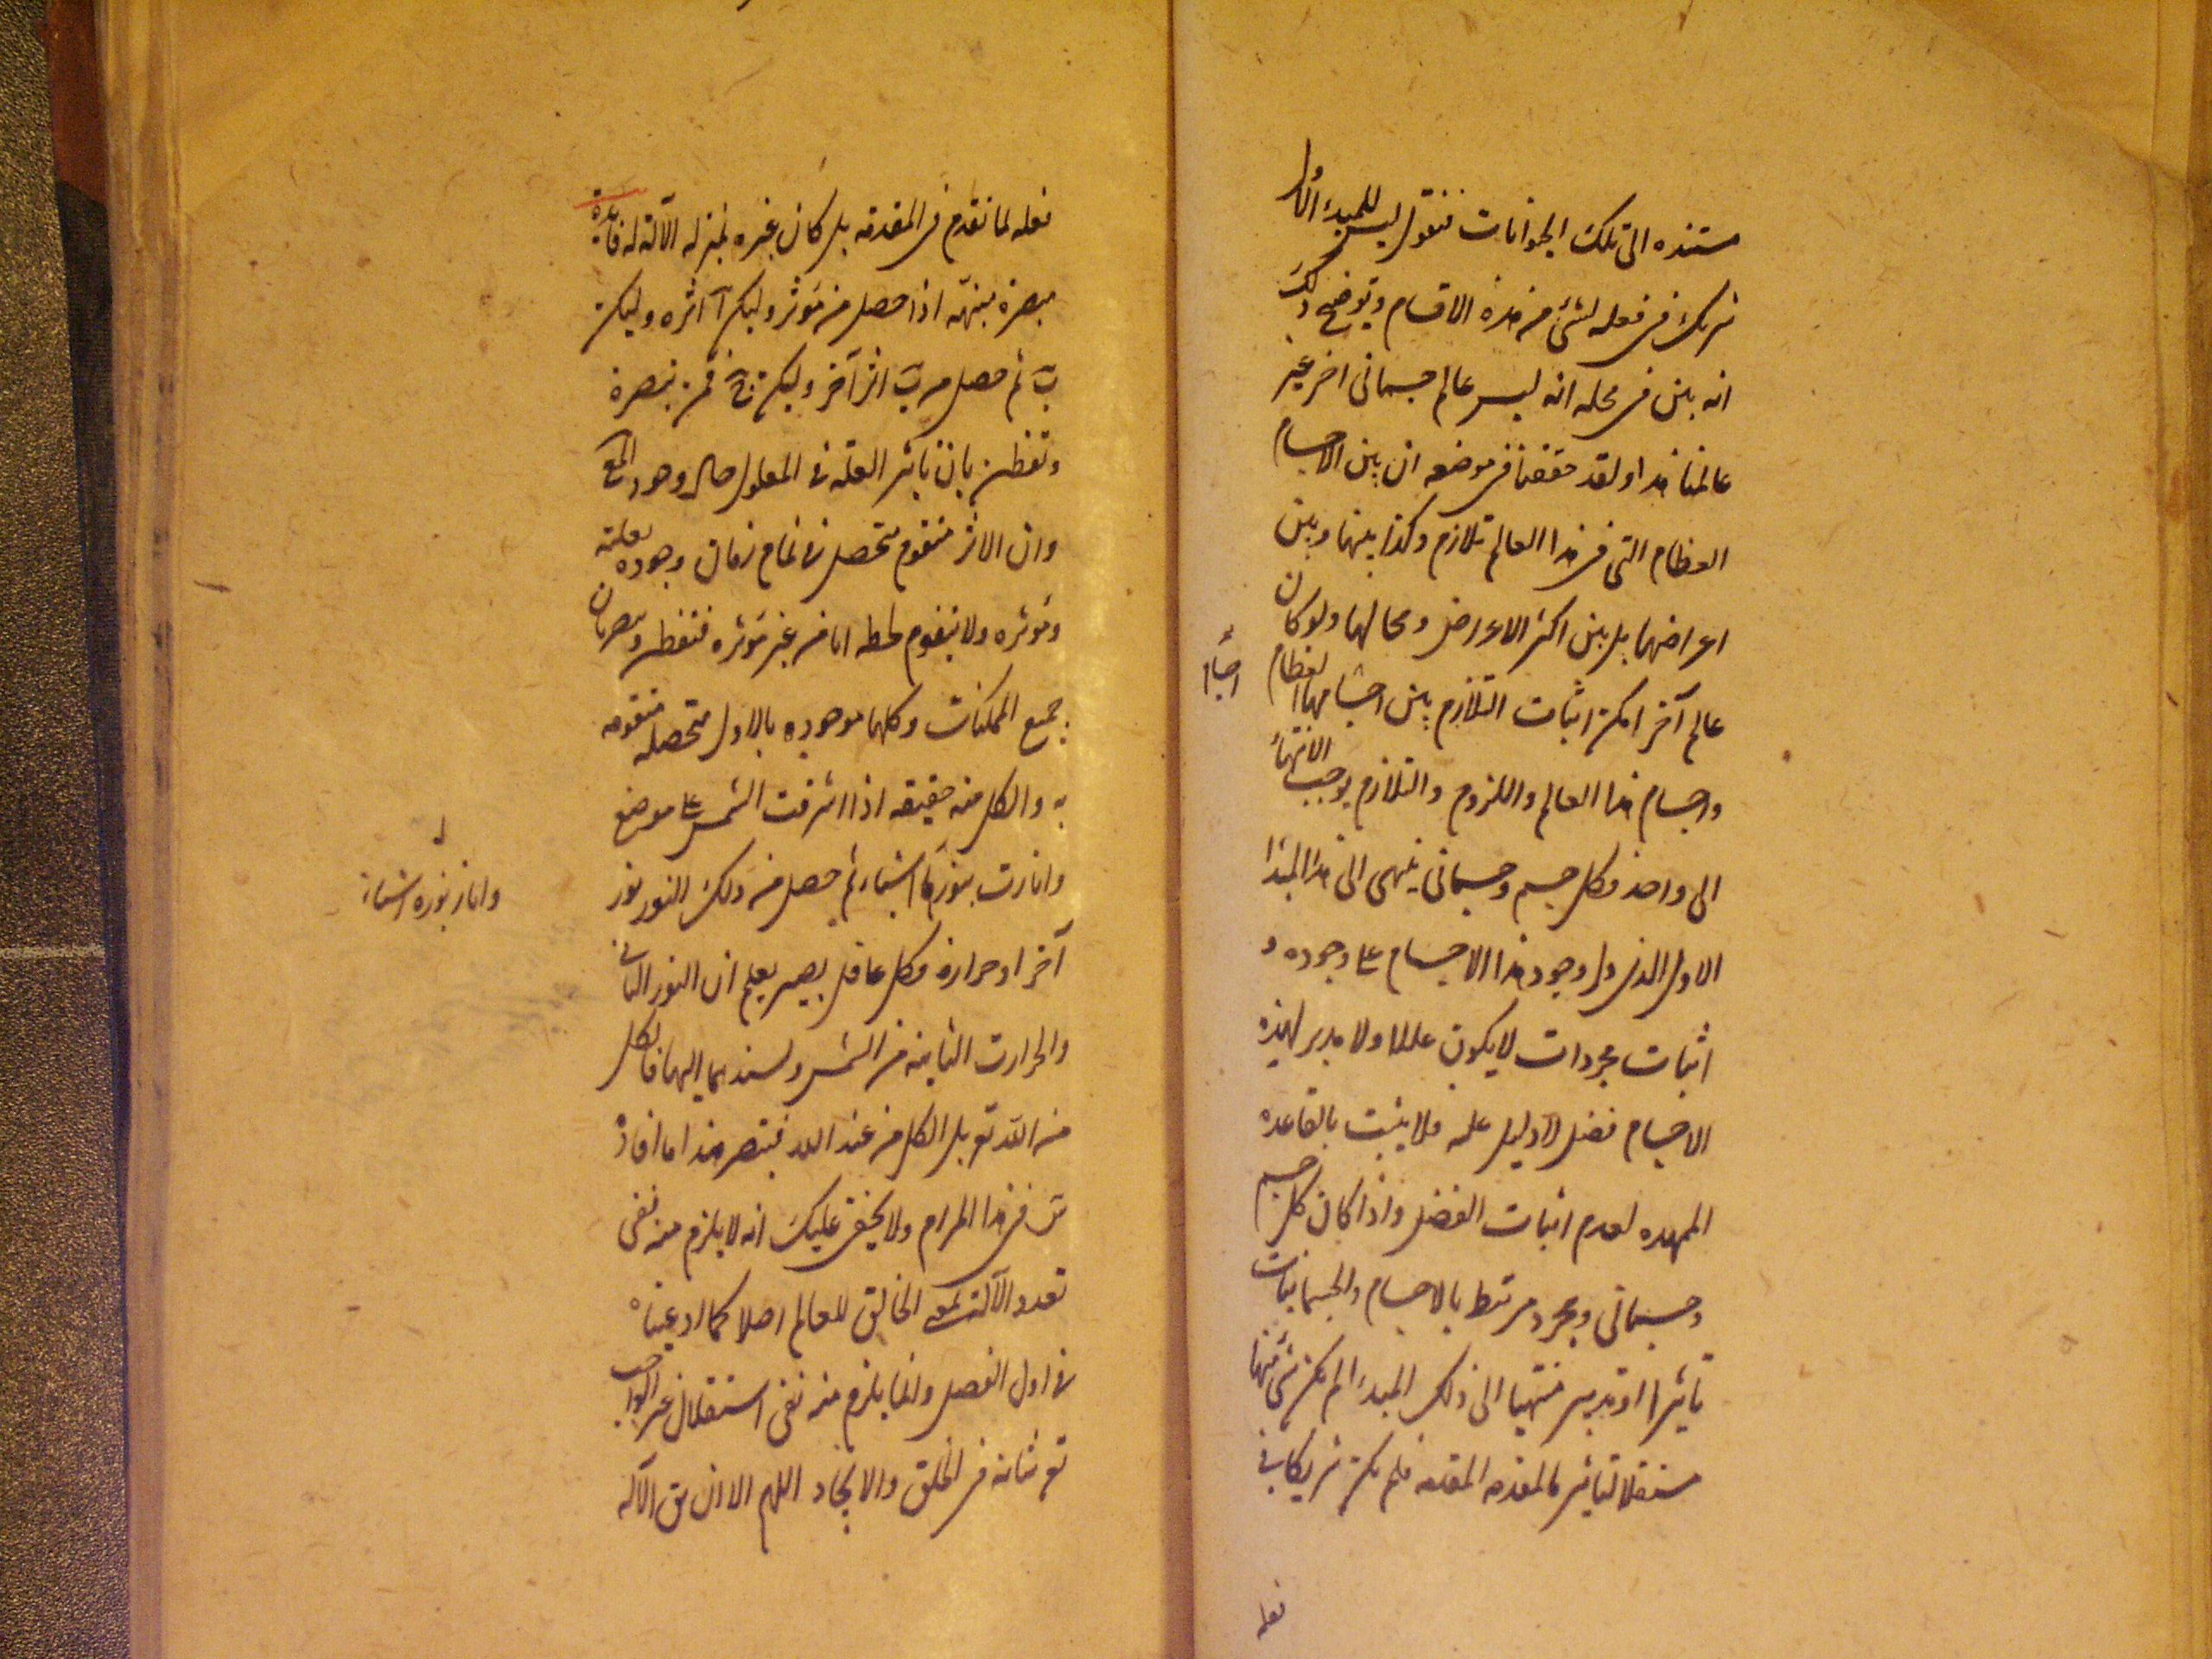 مستنده الى تلك الحيوانات فنقول ليس للمبدء الاول
شريك فى فعله لشئ من هذه الاقسام و توضيح ذلك
انه بين فى محله انه ليس عالم جسمانى اخر غير
عالمنا هذا و لقد حققنا فى موضعه ان بين الاجسام
العظام التى فى هذا العالم تلازم و كذا بينها و بين
اعراضها بل بين اكثر الاعراض و محالها و لو كان
عالم آخر امكن اثبات التلازم بين اجسامها العظام
و اجسام هذا العالم و اللزوم و التلازم يوجب الانتهاء
الى واحد فكل جسم و جسمانى ينتهى الى هذا المبدا
الاول الذى دل وجود هذا الاجسام على وجوده و
اثبات مجردات لا يكون عللا و لا مدبر لهذه
الاجسام فضل لا دليل عليه فلا يثبت بالقاعده
الممهده لعدم اثبات الفضل و اذا كان كل جسم
و جسمانى و مجرد مرتبط بالاجسام و الجسمانيات
تأثيرا او تدبير منتهيا الى ذلك المبدء لم يكن شئ منها
مستقلا لتاثير للمقدمه المقدمه فلم يكن شريكا فى
فعله
فعله لما تقدم فى المقدمه بل كان غيره بمنزله الآلة له فاعله
تبصرة بينهة اذا حصل من مؤثر وليكن آ اثره وليكن
ب ثم حصل من ب اثر آخر وليكن ج فمن تبصره
و تفطن بان تاثير العلة فى المعلول حال وجود المع
و ان الاثر متقوم متحصل فى تمام زمان وجوده بعلته
و مؤثره و لا يتقوم لحظه اما من غير مؤثره فتفطن و تبصر بان
جميع الممكنات و كلها موجوده بالاول متحصله متقومه
به و الكل منه حقيقه اذا اشرقت الشمس على موضع
و انارت بنورها اشياء ثم حصل من ذلك النور نور
و انار بنوره اشياء
آخر او حراره فكل عاقل بصير يعلم ان النور الثانى
و الحرارت الثانيه من الشمس و يسندهما اليها فالكل
من الله تع بل الكل من عند الله فتبصر هذا ما افاد
فى هذا المرام و لا يخفى عليك انه لا يلزم منه نفى
تعدد الآلة بمعنى الخالق للعالم اصلا كما ادعيناه
فى اول الفصل و انما يلزم منه نفى استقلال غير الواجب
تع شانه فى الخلق و الايجاد اللهم الا ان يق الآله